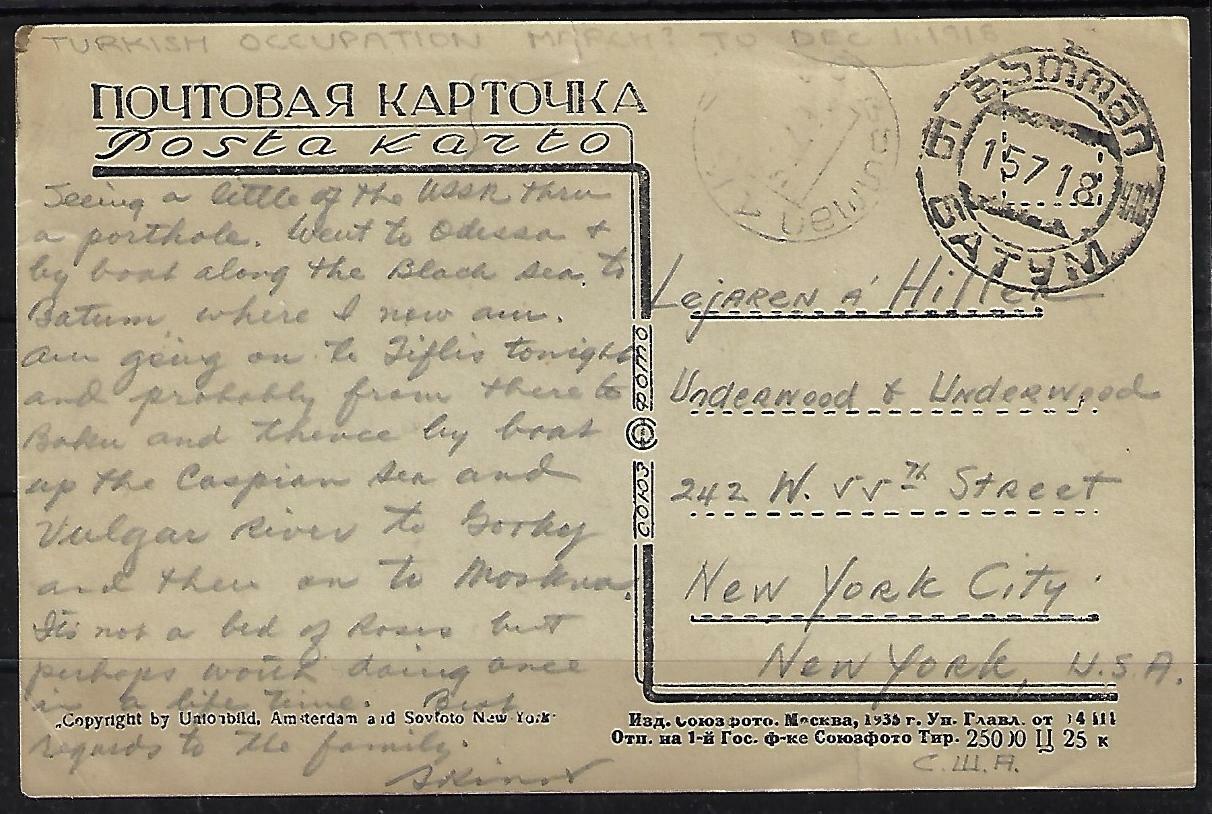 TURKISH OCCUPATION MARCH? TO DEC 1. 1918
ПОЧТОВАЯ КАРТОЧКА
Posta karto
Seeing a little of the USSR thru
a porthole. Went to Odessa &
by boat along the Black Sea, to
Batum where I now am.
Am going on to Tiflis tonight
and probably from there to
Baku and thence by boat
up the Caspian Sea and
Vulgar River to Gorky
and then on to Moskva.
It's not a bed of Roses but
perhaps worth doing once
in a life time. Best
regards to the family.
БАТУМ
15 7 18
Lejaren á Hiller
Underwood & Underwood
242 W. 55th Street
New York City.
New York, U.S.A.
С.Ш.А.
СОЮЗ ФОТО
„Copyright by Unionbild, Amsterdam and Sovfoto New York“
Изд. Союзфото. Москва, 1935 г. Уп. Главл. от
Отп. на 1-й Гос. ф-ке Союзфото Тир. 25000 Ц 25 к